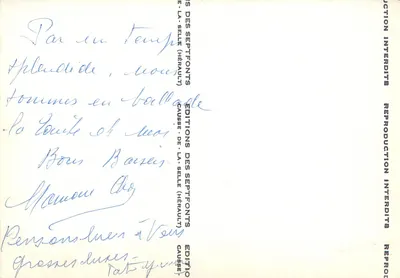 Par un temps
splendide, nous
sommes en ballade
la Tante et moi
Bons Baisers
Pensons bien à Vous
grosses bises
EDITIONS DES SEPTFONTS
CAUSSE - DE - LA - SELLE (HÉRAULT)
EDITIONS DES SEPTFONTS
CAUSSE - DE - LA - SELLE (HÉRAULT)
REPRODUCTION INTERDITE
REPRODUCTION INTERDITE